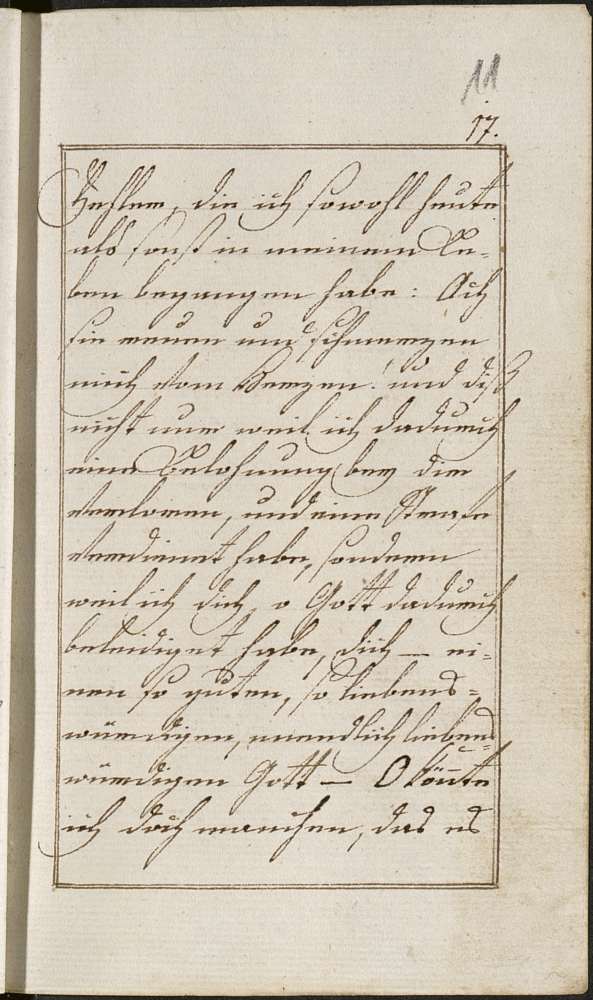 11
17.
Fehlern, die ich sowohl heute
als sonst in meinem Le-
ben begangen habe: Ach
sie reuen und schmerzen
mich vom Herzen! und diß
nicht nur weil ich dadurch
eine Belohnung bey dir
verloren, und eine Strafe
verdienet habe, sondern
weil ich dich, o Gott dadurch
beleidiget habe, dich — ei-
nen so guten, so liebens-
würdigen, unendlich liebens-
würdigen Gott — O könnte
ich doch machen, das es